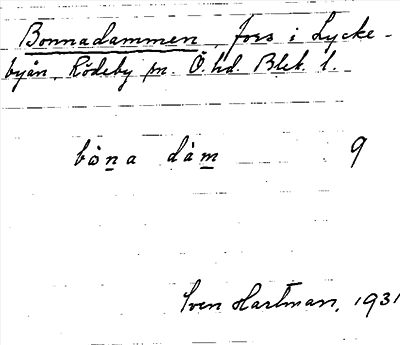 Bonnadammen, fors i Lycke-
byån, Rödeby sn. Ö. hd. Blek. l.
bòn̲a dàm̲ 9
Sven Hartman, 1931